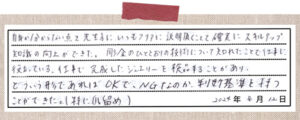 自分が分からない点を先生がいつもアツアツに説明頂くことで確実にスキルアップ
知識の向上ができた。彫金のひとつひとつの技術について知れたことで仕事に
役立っている。仕事で完成したジュエリーを検品することがあり、
どういう形であればOKで、NGなのか、判断基準を持つ
ことができた。(特に爪留め) 2024年4月12日